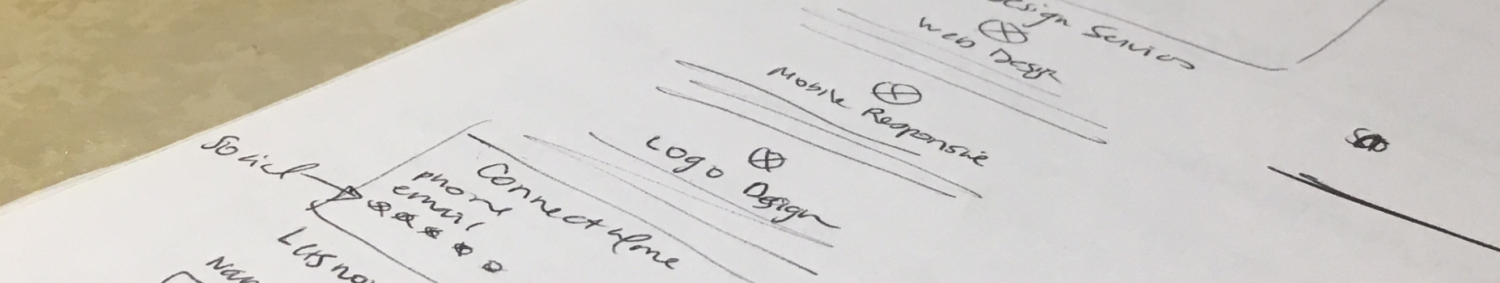 Design Services
Web Design
Mobile Responsive
Logo Design
Social
Connect
phone
email